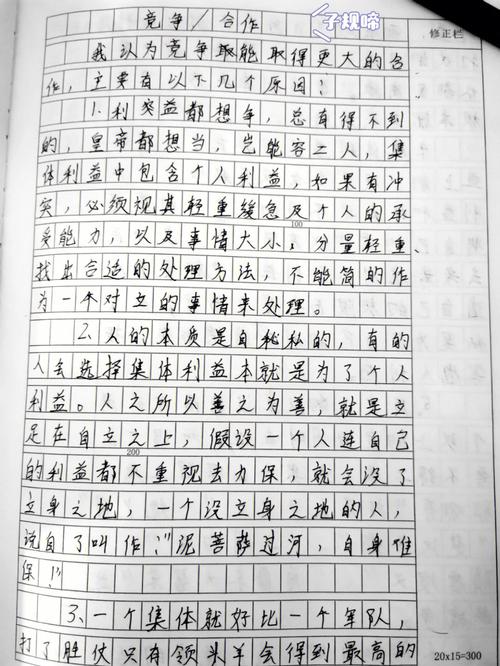 竞争/合作
子规啼
修正栏
我认为竞争取能取得更大的合
作，主要有以下几个原因：
1.利突益都想争，总有得不到
的，皇帝都想当，岂能容二人，集
体利益中包含个人利益，如果有冲
突，必须视其轻重缓急及个人的承
100
受能力，以及事情大小，分量轻重
找出合适的处理方法，不能简的作
为一个对立的事情来处理。
2.人的本质是自私的，有的
人会选择集体利益本就是为了个人
利益。人之所以善之为善，就是立
足在自立之上，假设一个人连自己
200
的利益都不重视去力保，就会没了
立身之地，一个没立身之地的人，
说白了叫作："泥菩萨过河，自身难
保！"
3.一个集体就好比一个军队，
打了胜仗只有领头羊会得到最高的
20×15=300